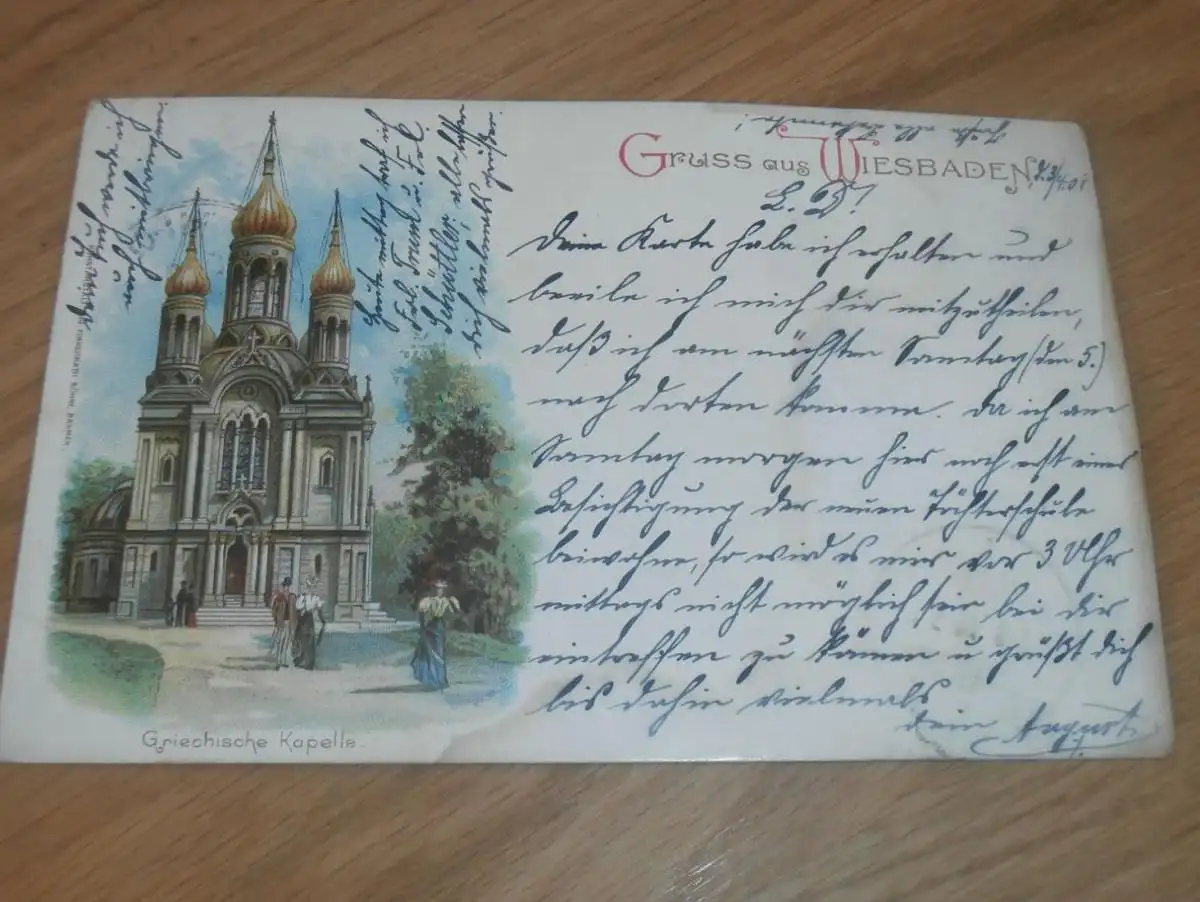 Gruss aus Wiesbaden, d. 3/4. 01
L. D!
Deine Karte habe ich erhalten und
beeile ich mich dir mitzutheilen,
daß ich am nächsten Samstag (den 5.)
nach dorten komme. Da ich am
Samstag morgen hier noch erst einer
Besichtigung der neuen Töchterschule
beiwohne, so wird es mir vor 3 Uhr
mittags nicht möglich sein bei dir
eintreffen zu können u grüßt dich
bis dahin vielmals
dein August.
Grüße alle Bekannte!
Heute mittag traf ich
Frl. Trum u. Frl.
Schüttler; alle lassen
dich vielmals grüßen.
Griechische Kapelle.